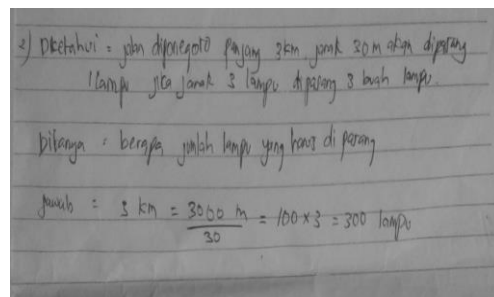 2) Diketahui = jalan diponegoro panjang 3km. jarak 30 m akan dipasang
1 lampu jika jarak 3 lampu dipasang 3 buah lampu.
Ditanya = berapa jumlah lampu yang harus di pasang
jawab = 3 km = 3000 m / 30 = 100 × 3 = 300 lampu